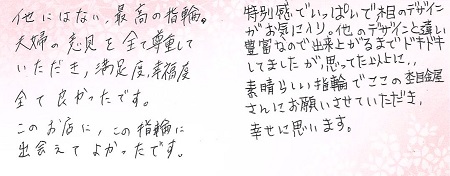 他にはない、最高の指輪。
夫婦の意見を全て尊重して
いただき、満足度、幸福度
全て良かったです。
このお店に、この指輪に
出会えてよかったです。
特別感でいっぱいで木目のデザイン
がお気に入り。他のデザインと違い
豊富なので出来上がるまでドキドキ
してましたが、思ってた以上に、、
素晴らしい指輪でここの杢目金屋
さんにお願いさせていただき、
幸せに思います。